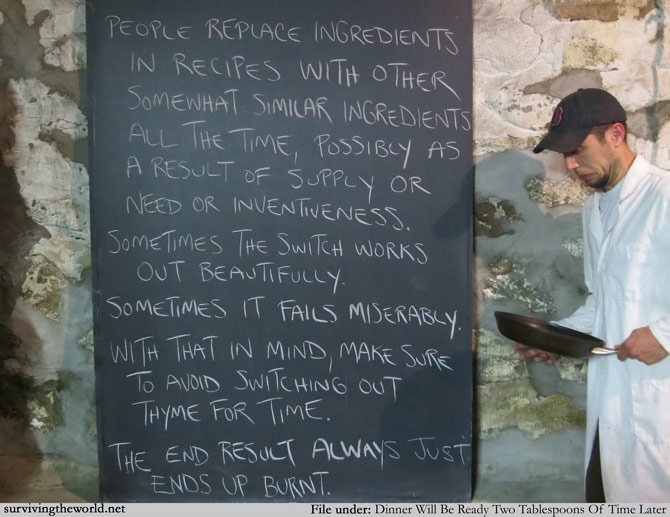 PEOPLE REPLACE INGREDIENTS
IN RECIPES WITH OTHER
SOMEWHAT SIMILAR INGREDIENTS
ALL THE TIME, POSSIBLY AS
A RESULT OF SUPPLY OR
NEED OR INVENTIVENESS.
SOMETIMES THE SWITCH WORKS
OUT BEAUTIFULLY.
SOMETIMES IT FAILS MISERABLY.
WITH THAT IN MIND, MAKE SURE
TO AVOID SWITCHING OUT
THYME FOR TIME.
THE END RESULT ALWAYS JUST
ENDS UP BURNT.
survivingtheworld.net
File under: Dinner Will Be Ready Two Tablespoons Of Time Later.